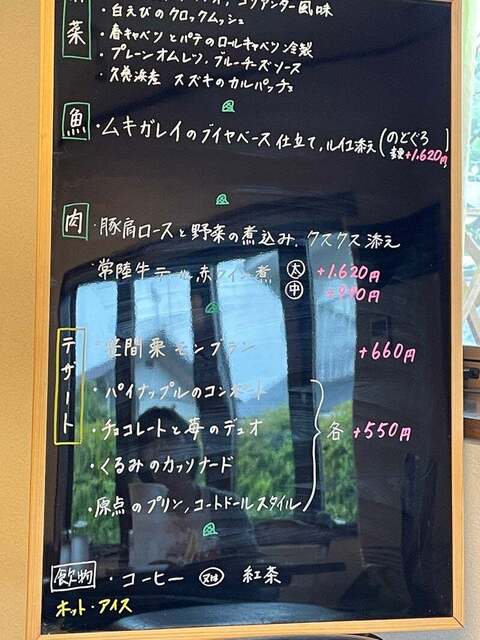 菜
コリアンダー風味
・白えびのクロックムッシュ
・春キャベツとパテのロールキャベツ冷製
・プレーンオムレツ、ブルーチーズソース
・久慈浜産 スズキのカルパッチョ
魚
・ムキガレイのブイヤベース仕立て、ルイユ添え(のどぐろ
+1.620円)
肉
・豚肩ロースと野菜の煮込み、クスクス添え
・常陸牛テール赤ワイン煮 大 +1.620円
中 +990円
デザート
・笠間栗モンブラン +660円
・パイナップルのコンポート
・チョコレートと苺のデュオ
各 +550円
・くるみのカッソナード
・原点のプリン、コートドールスタイル
飲物 ・コーヒー 又は 紅茶
ホット・アイス